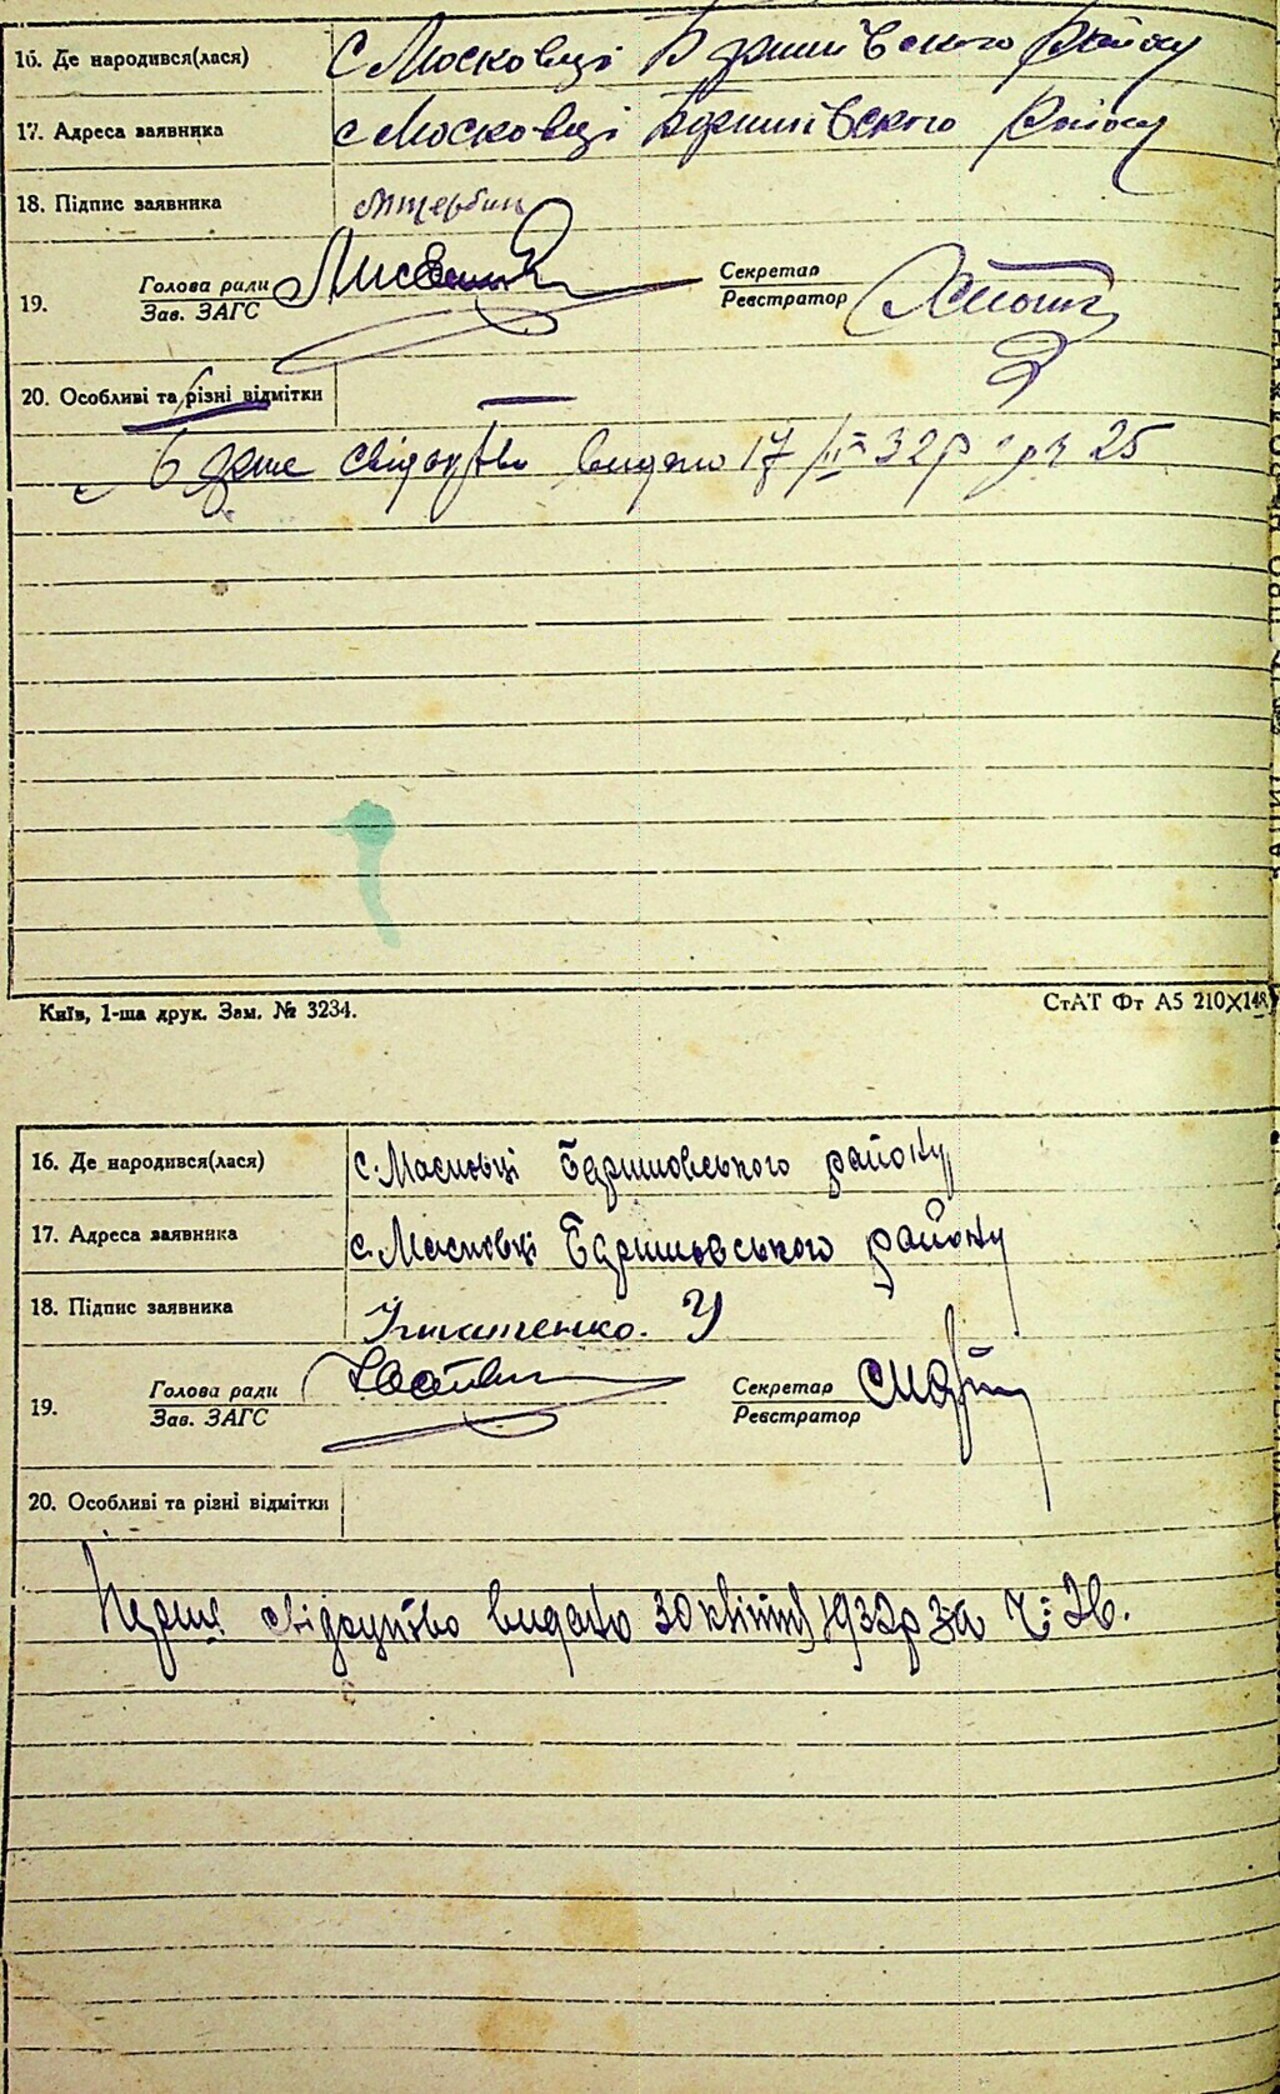 16. Де народився(лася) с Московці Баришівського району
17. Адреса заявника с Московці Баришівського Району
18. Підпис заявника
Голова ради Секретар
19. Зав. ЗАГС Реєстратор
20. Особливі та різні відмітки —
свідоцтво видано 17/III 32р 25
Київ, 1-ша друк. Зам. № 3234. СтАТ Фт А5 210×148
16. Де народився(лася) с. Масковці Баришовського району
17. Адреса заявника с. Масковці Баришовського району
18. Підпис заявника Ігнатенко. У
Голова ради Секретар
19. Зав. ЗАГС Реєстратор
20. Особливі та різні відмітки
Перше свідоцтво видано 30 квітня 1932р за Ч: 26.